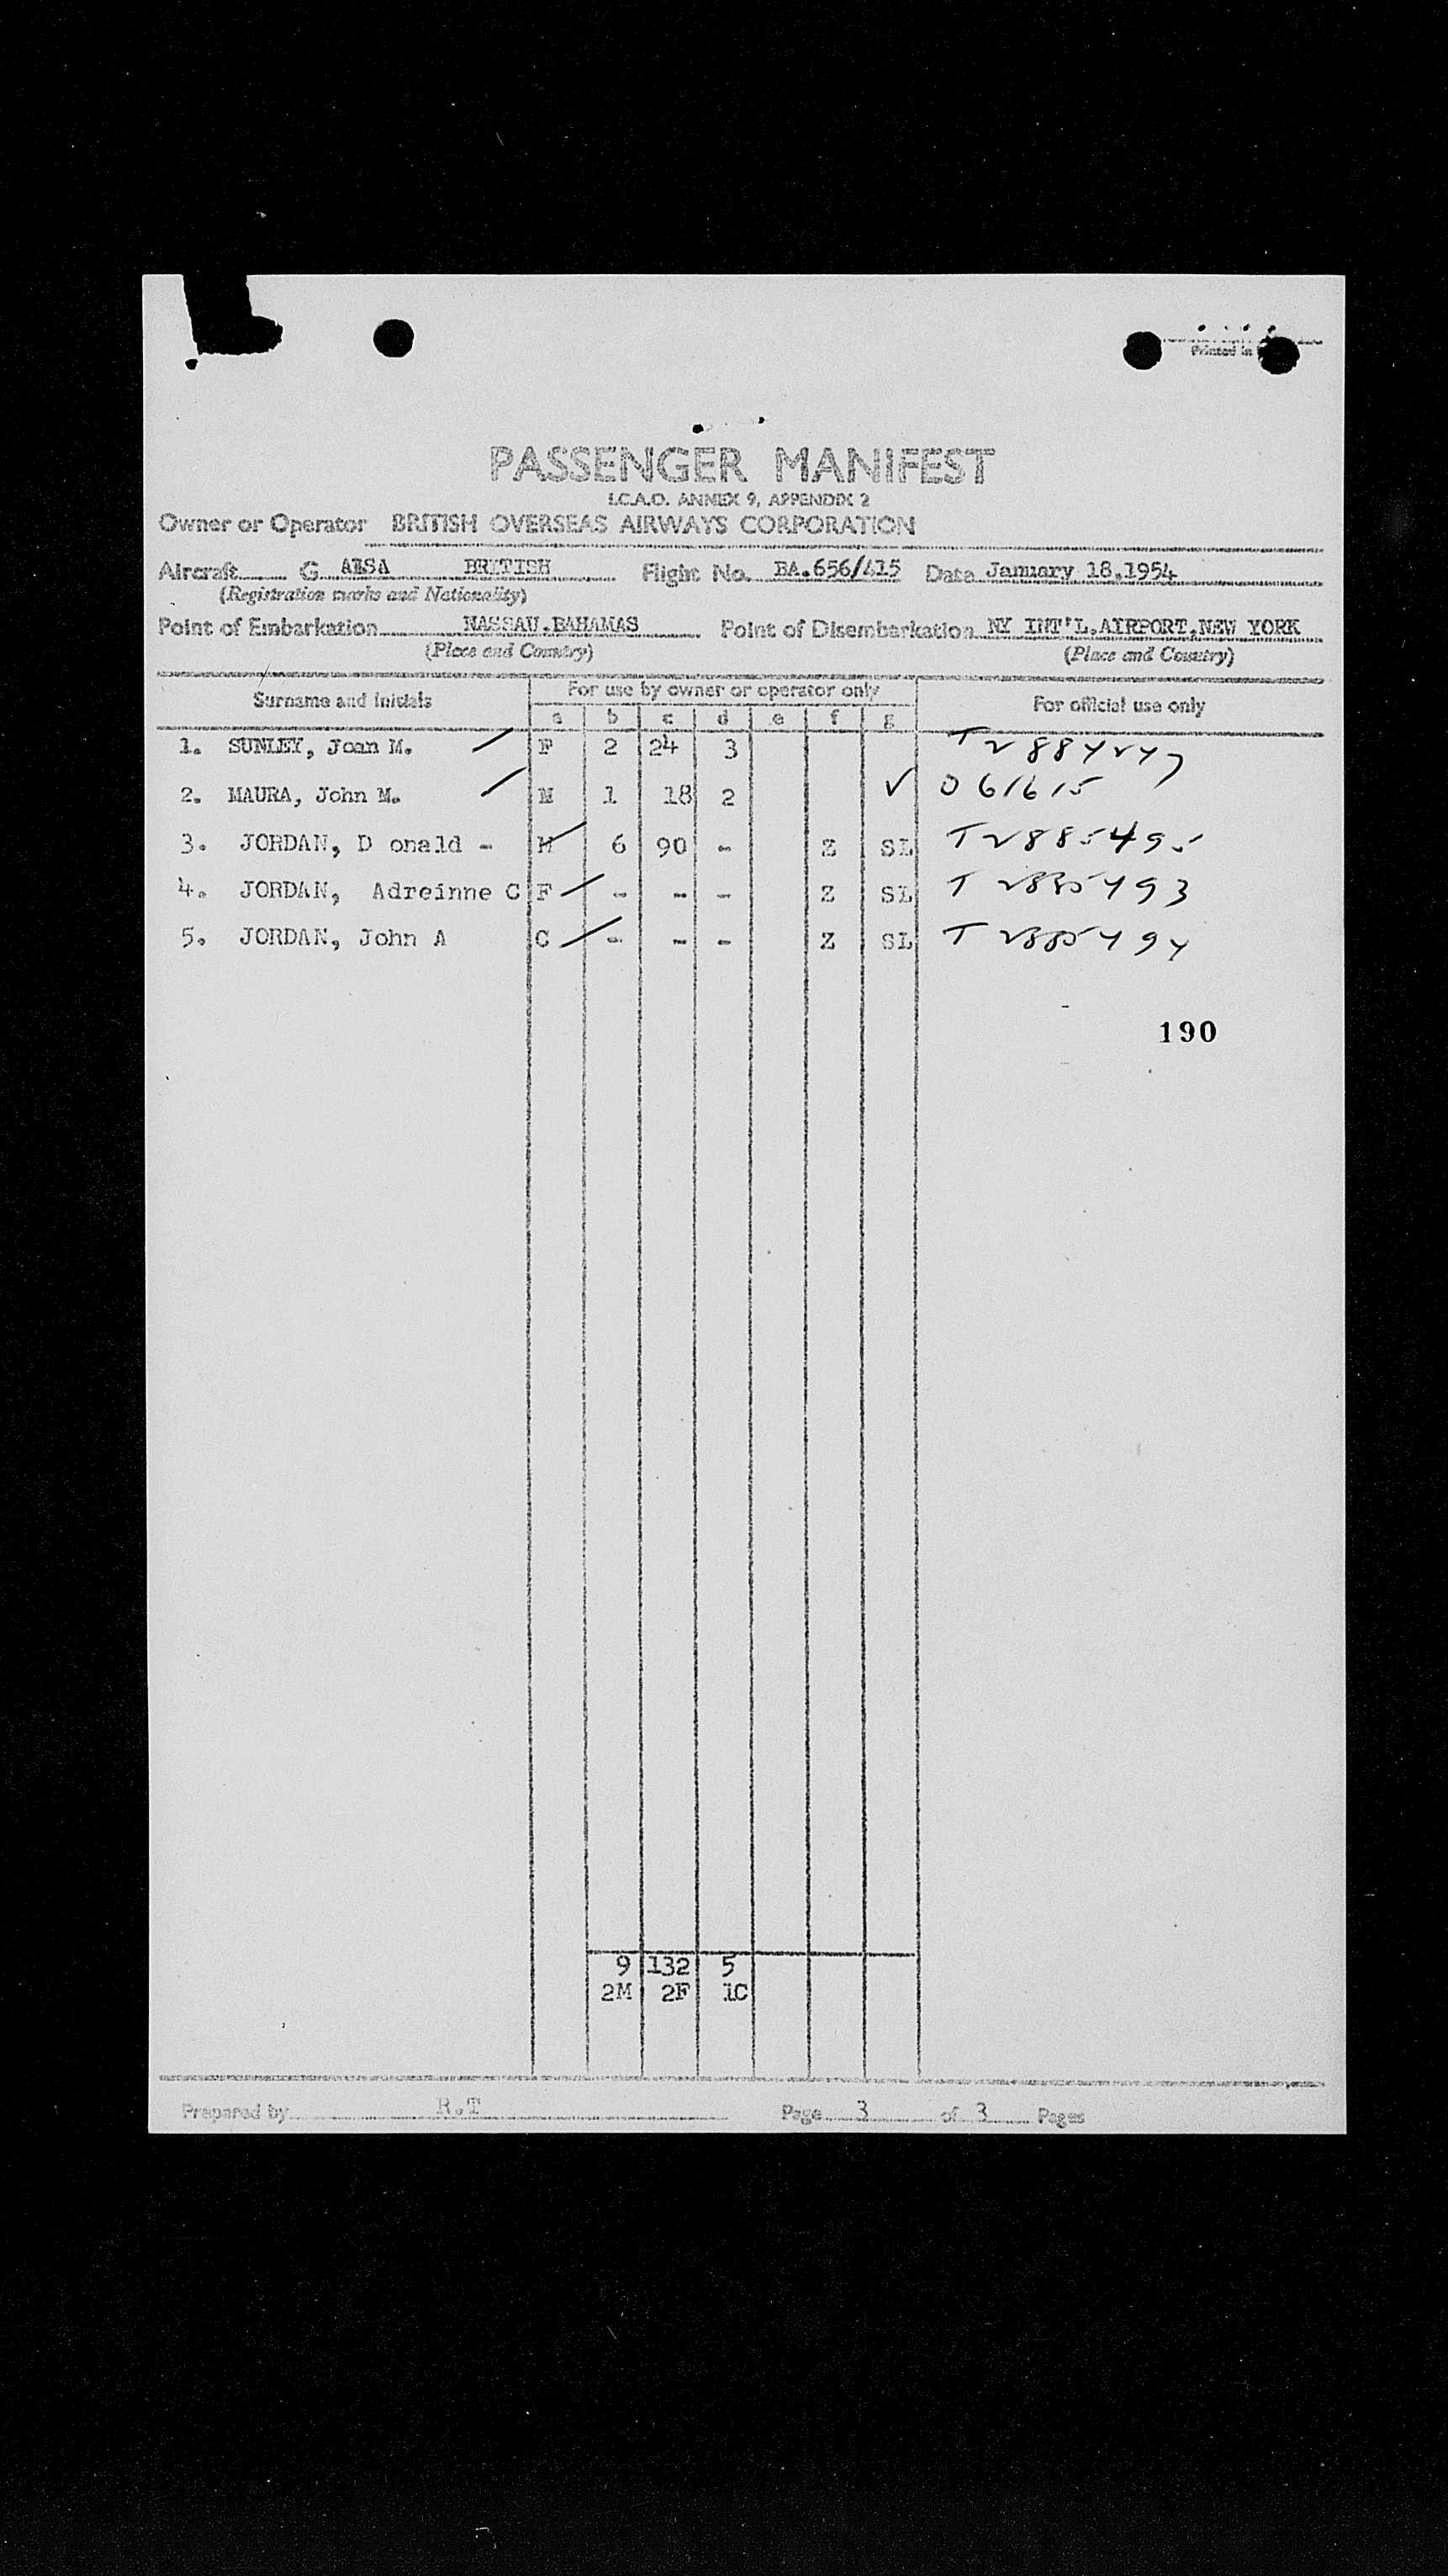 Printed in
PASSENGER MANIFEST
I.C.A.O. ANNEX 9, APPENDIX 2
Owner or Operator BRITISH OVERSEAS AIRWAYS CORPORATION
Aircraft G ALSA BRITISH Flight No. BA.656/415 Date January 18,1954
(Registration marks and Nationality)
Point of Embarkation NASSAU.BAHAMAS Point of Disembarkation NY INT'L.AIRPORT,NEW YORK
(Place and Country) (Place and Country)
Surname and Initials For use by owner or operator only For official use only
a b c d e f g
1. SUNLEY, Joan M. F 2 24 3 T 2884247
2. MAURA, John M. M 1 18 2 ✓ 061615
3. JORDAN, D onald - M 6 90 - Z SL T 2885495
4. JORDAN, Adreinne C F - - - Z SL T 2885493
5. JORDAN, John A C - - - Z SL T 2885494
190
9 132 5
2M 2F 1C
Prepared by R.T Page 3 of 3 Pages